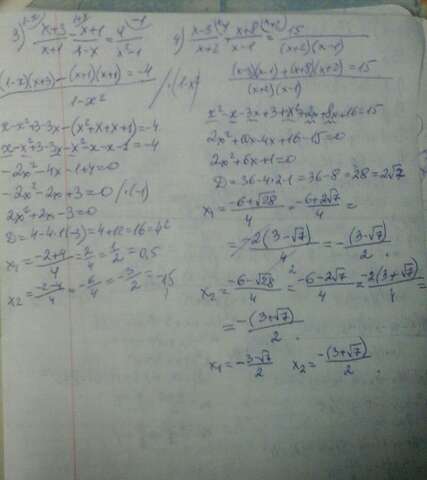 3) (1-x) x+3/x+1 - (x+1) x+1/1-x = 4(-1)/x²-1
(1-x)(x+3) - (x+1)(x+1) = -4 / 1-x² / ·(1-x²)
x-x²+3-3x-(x²+x+x+1)=-4
x-x²+3-3x-x²-x-x-1=-4
-2x²-4x-1+4=0
-2x²-2x+3=0 /·(-1)
2x²+2x-3=0
D=4-4·1·(-3)=4+12=16=4²
x₁=-2+4/4=2/4=1/2=0,5
x₂=-2-4/4=-6/4=-3/2=-1,5
4) x-3/x+2 + x+8/x-1 = 15/(x+2)(x-1)
(x-3)(x-1)+(x+8)(x+2)=15/(x+2)(x-1)
x²-x-3x+3+x²+2x+8x+16=15
2x²+10x-4x+16-15=0
2x²+6x+1=0
D=36-4·2·1=36-8=28=2√7
x₁=-6+√28/4=-6+2√7/4=
=-2(3-√7)/4=-(3-√7)/2.
x₂=-6-√28/4=-6-2√7/4=-2(3+√7)/4=
=-(3+√7)/2.
x₁=-3-√7/2 x₂=-(3+√7)/2.